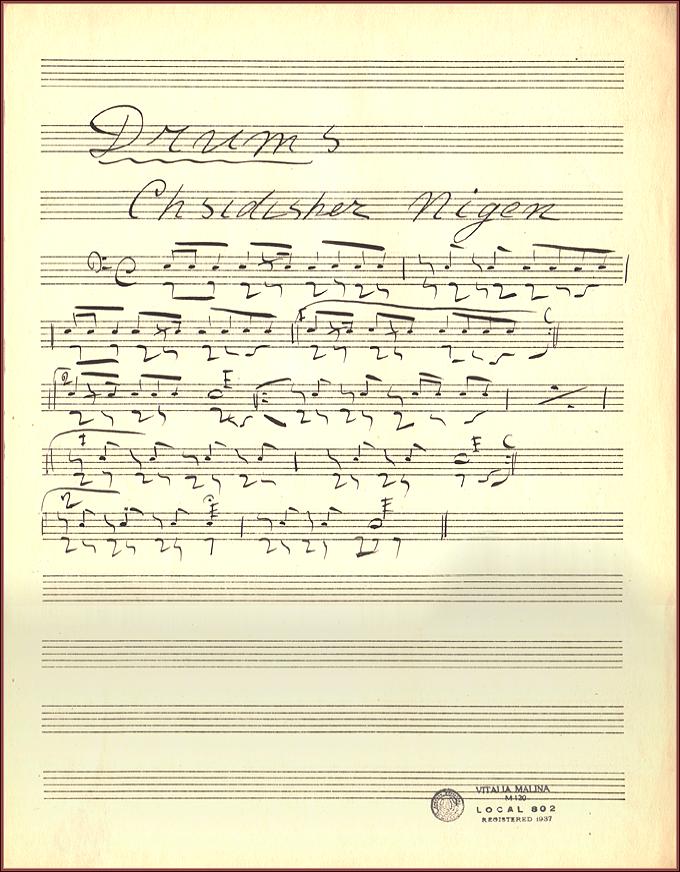 Drums
Chsidisher Nigen
1
2
1
2
VITALIA MALINA
M-120
LOCAL 802
REGISTERED 1937